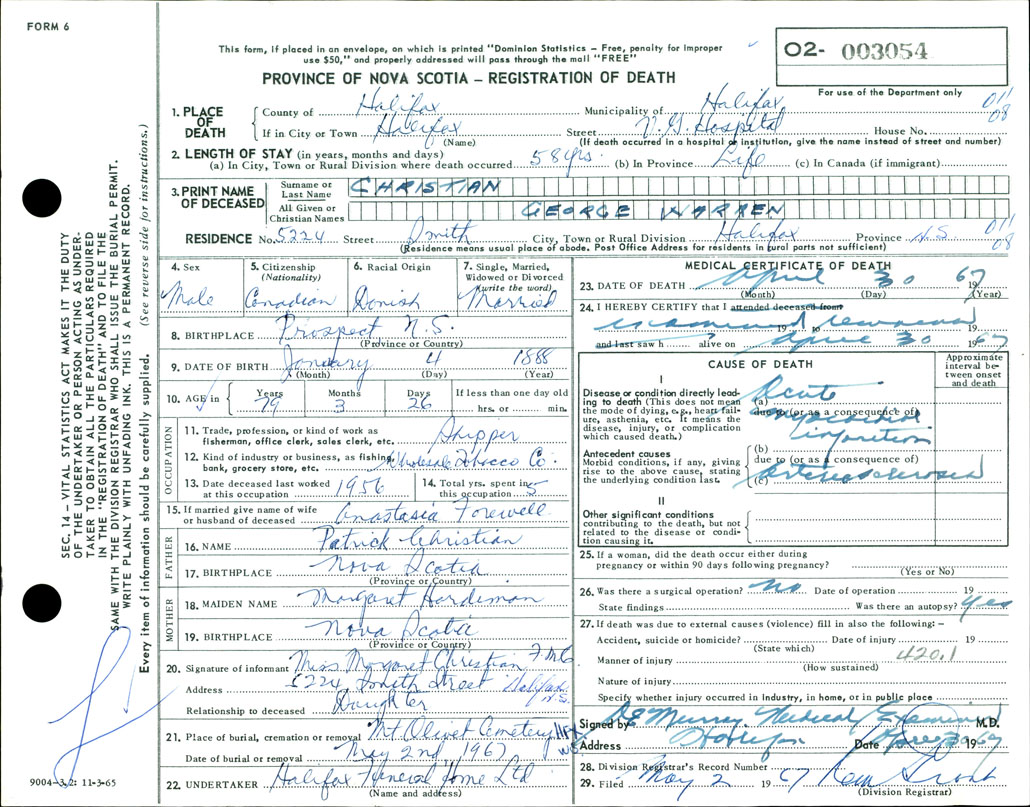 FORM 6
This form, if placed in an envelope, on which is printed "Dominion Statistics – Free, penalty for improper
use $50," and properly addressed will pass through the mail "FREE"
02- 003054
For use of the Department only
PROVINCE OF NOVA SCOTIA – REGISTRATION OF DEATH
011
08
1. PLACE OF DEATH
County of Halifax Municipality of Halifax
If in City or Town Halifax Street V.G. Hospital House No.
(Name) (If death occurred in a hospital or institution, give the name instead of street and number)
2. LENGTH OF STAY (in years, months and days)
(a) In City, Town or Rural Division where death occurred 58 yrs. (b) In Province Life (c) In Canada (if immigrant)
3. PRINT NAME OF DECEASED
Surname or Last Name CHRISTIAN
All Given or Christian Names GEORGE WARREN
RESIDENCE No. 5224 Street Smith City, Town or Rural Division Halifax Province N.S.
011
08
(Residence means usual place of abode. Post Office Address for residents in rural parts not sufficient)
4. Sex Male
5. Citizenship (Nationality) Canadian
6. Racial Origin Danish
7. Single, Married, Widowed or Divorced (write the word) Married
8. BIRTHPLACE Prospect N.S.
(Province or Country)
9. DATE OF BIRTH January 4 1888
(Month) (Day) (Year)
10. AGE in Years 79 Months 3 Days 26 If less than one day old hrs. or min.
OCCUPATION
11. Trade, profession, or kind of work as fisherman, office clerk, sales clerk, etc. Shipper
12. Kind of industry or business, as fishing, bank, grocery store, etc. Wholesale Tobacco Co.
13. Date deceased last worked at this occupation 1956
14. Total yrs. spent in this occupation 5
15. If married give name of wife or husband of deceased Anastasia Forewell
FATHER
16. NAME Patrick Christian
17. BIRTHPLACE Nova Scotia
(Province or Country)
MOTHER
18. MAIDEN NAME Margaret Hardiman
19. BIRTHPLACE Nova Scotia
(Province or Country)
20. Signature of informant Miss Margaret Christian
Address 5224 Smith Street Halifax N.S.
Relationship to deceased Daughter
21. Place of burial, cremation or removal Mt. Olivet Cemetery
Date of burial or removal May 2nd, 1967
22. UNDERTAKER Halifax Funeral Home Ltd
(Name and address)
MEDICAL CERTIFICATE OF DEATH
23. DATE OF DEATH April 30 1967
(Month) (Day) (Year)
24. I HEREBY CERTIFY that I attended deceased from
examined 19 to 19
and last saw h alive on April 30 1967
CAUSE OF DEATH
Approximate interval between onset and death
I
Disease or condition directly leading to death (This does not mean the mode of dying, e.g., heart failure, asthenia, etc. It means the disease, injury, or complication which caused death.)
(a) Acute
due to (or as a consequence of)
myocardial
infarction
Antecedent causes
Morbid conditions, if any, giving rise to the above cause, stating the underlying condition last.
(b)
due to (or as a consequence of)
(c) arteriosclerosis
II
Other significant conditions
contributing to the death, but not related to the disease or condition causing it.
25. If a woman, did the death occur either during
pregnancy or within 90 days following pregnancy?
(Yes or No)
26. Was there a surgical operation? No Date of operation 19
State findings Was there an autopsy? yes
27. If death was due to external causes (violence) fill in also the following: –
Accident, suicide or homicide? Date of injury 19
(State which)
420.1
Manner of injury
(How sustained)
Nature of injury
Specify whether injury occurred in industry, in home, or in public place
Signed by Murray Medical Examiner M.D.
Address Halifax Date 1967
28. Division Registrar's Record Number
29. Filed May 2 1967
(Division Registrar)
SEC. 14 – VITAL STATISTICS ACT MAKES IT THE DUTY
OF THE UNDERTAKER OR PERSON ACTING AS UNDER-
TAKER TO OBTAIN ALL THE PARTICULARS REQUIRED
IN THE "REGISTRATION OF DEATH" AND TO FILE THE
SAME WITH THE DIVISION REGISTRAR WHO SHALL ISSUE THE BURIAL PERMIT.
WRITE PLAINLY WITH UNFADING INK. THIS IS A PERMANENT RECORD.
Every item of information should be carefully supplied. (See reverse side for instructions.)
9004-3.2: 11-3-65